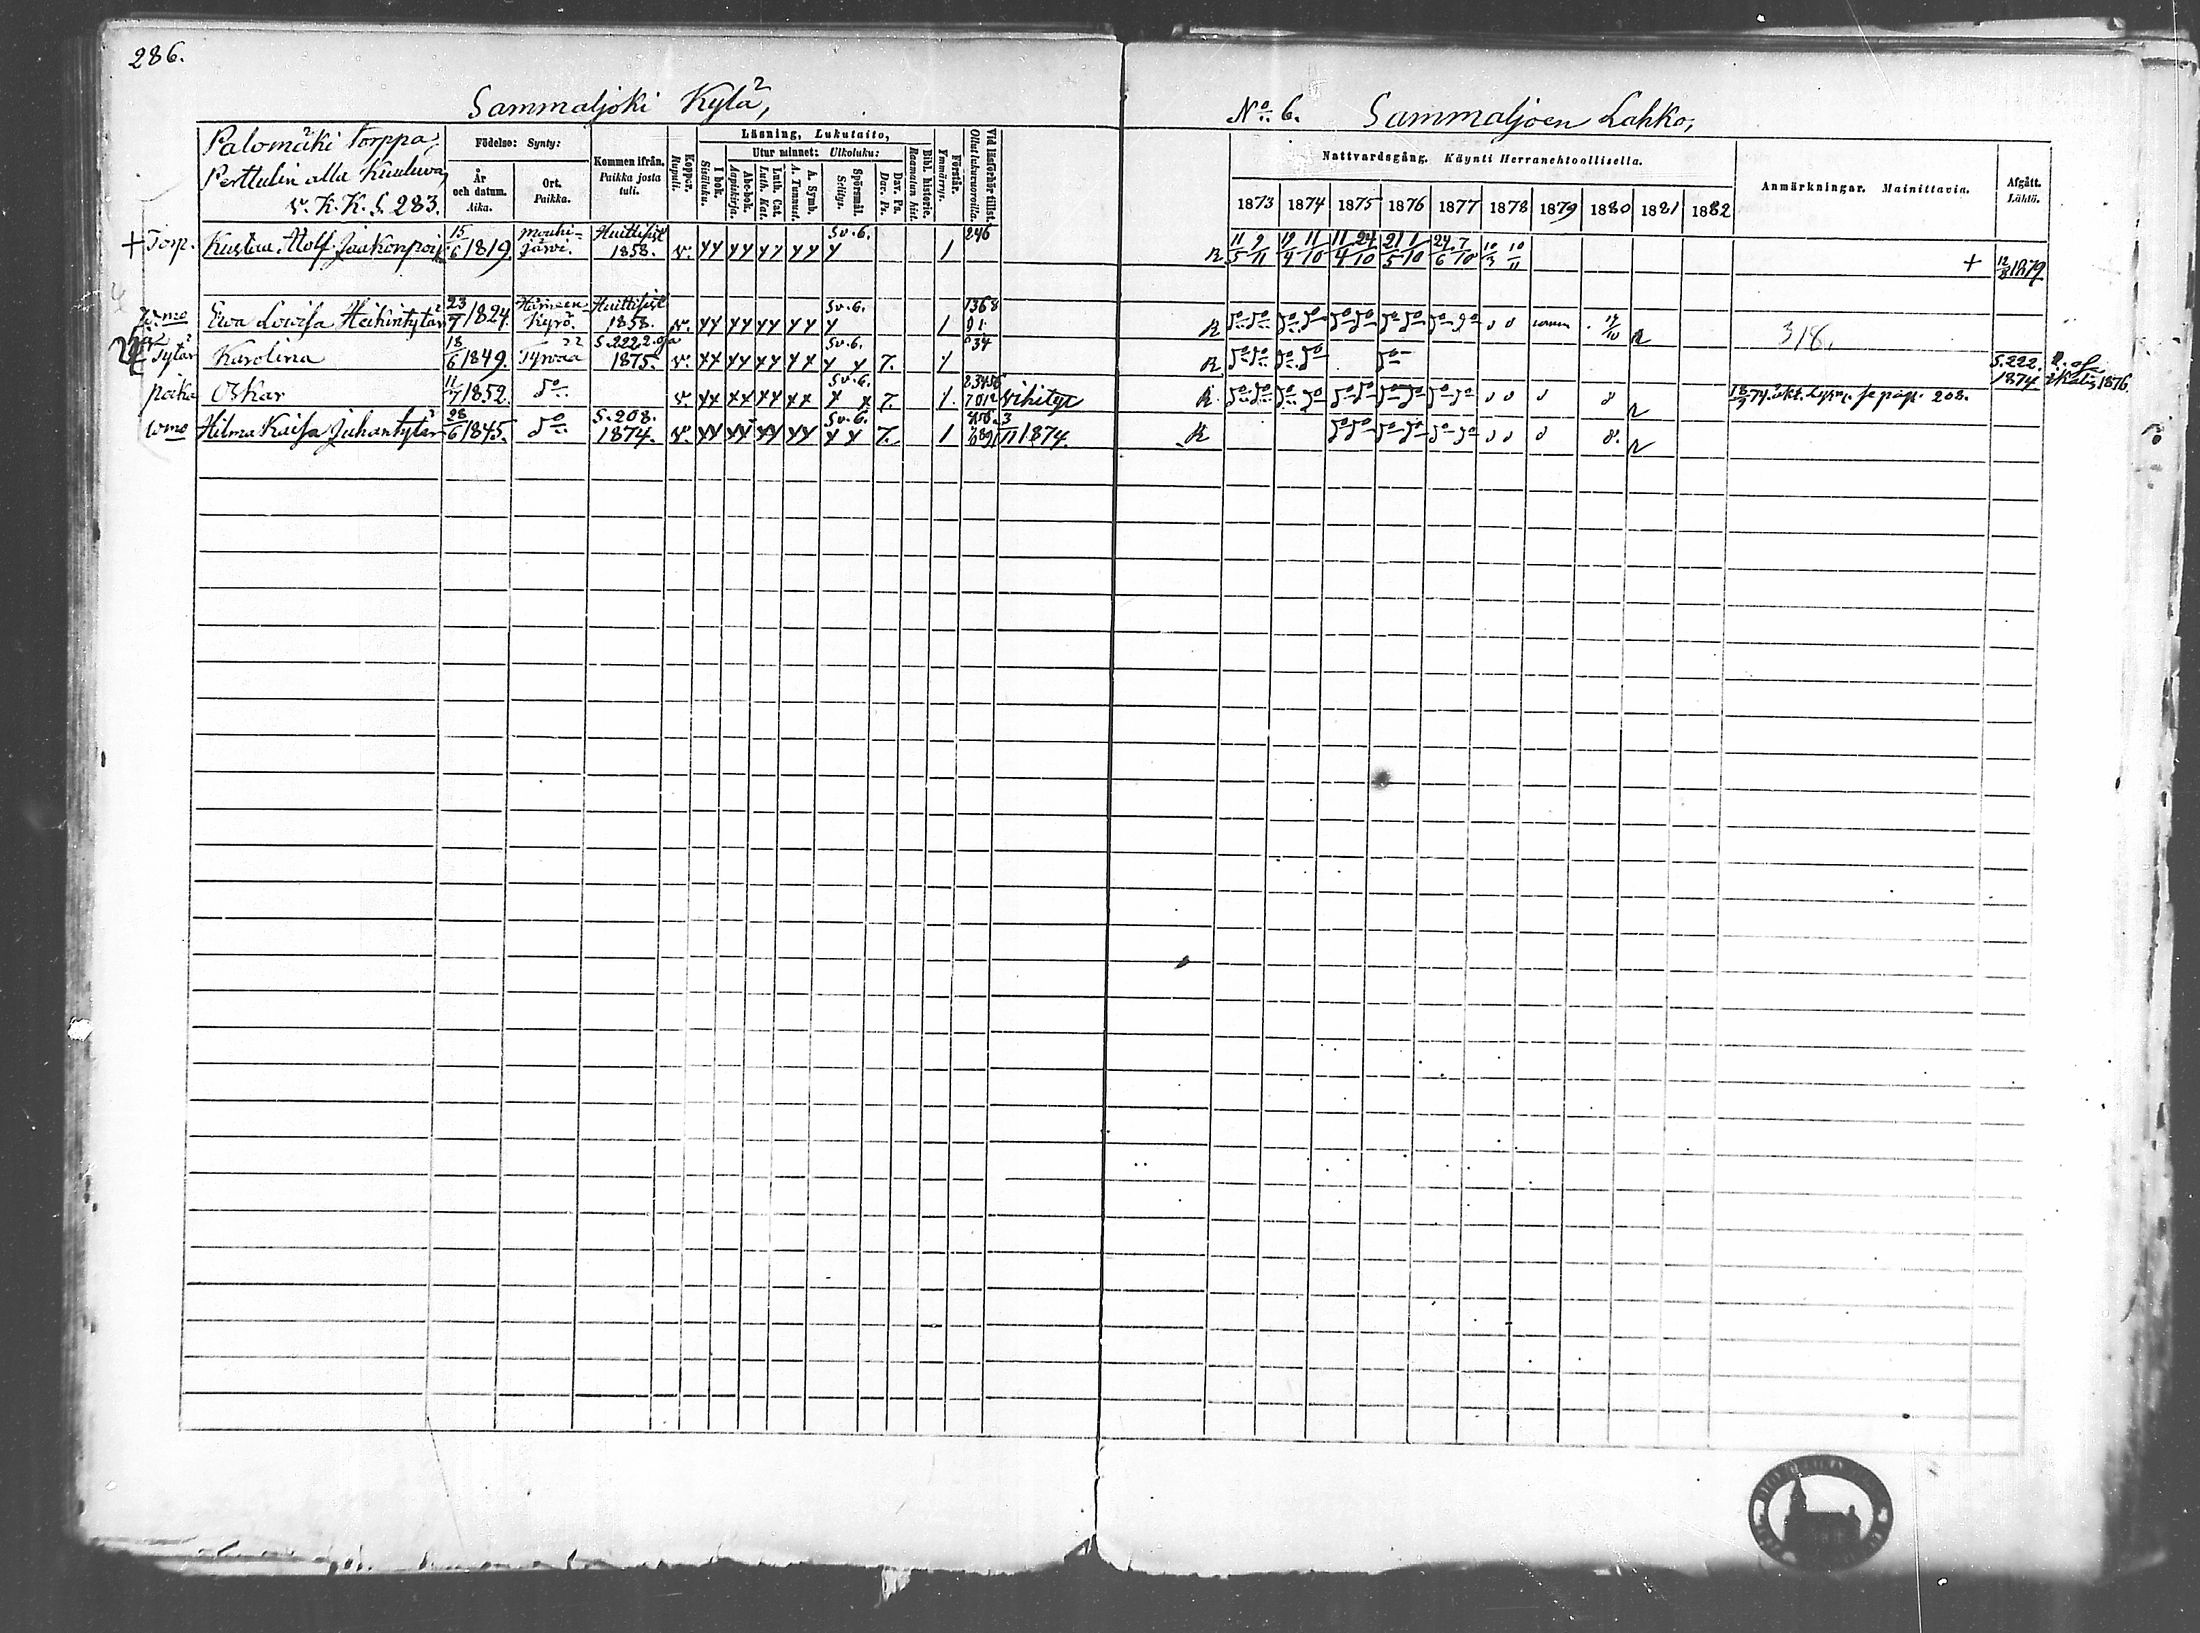 286.
Sammaljoki Kylä,
No 6. Sammaljoen Lahko,
Palomäki Torppa,
Perttulin alla Kuuluva,
v. K. K. S. 283.
Födelse: Synty:
År och datum. Aika.
Ort. Paikka.
Kommen ifrån. Paikka josta tuli.
Koppor. Rupuli.
Läsning, Lukutaito,
I bok. Sisäluku.
Utur minnet: Ulkoluku:
Abc-bok. Aapiskirja.
Luth. Cat. Luth. Kat.
A. Symb. A. Tunnust.
Spörsmål. Selitys.
Dav. Ps. Dav. Ps.
Bibl. historie. Raamatun hist.
Förstår. Ymmärrys.
Vid läsförhör tillst. Ollut lukuvuoroilla.
Nattvardsgång. Käynti Herranehtoollisella.
1873 1874 1875 1876 1877 1878 1879 1880 1881 1882
Anmärkningar. Mainittavia.
Afgått. Lähtö.
+ Torp. Kustaa Adolf Jaakonpoik 15/6 1819 Mouhijärvi. Huittisist 1858. v. yy yy yy yy Sv. 6. y 1 246 R 11/5 9/11 19/4 11/10 11/4 24/10 21/5 1/10 24/6 7/10 10/3 10/11 + 12/8 1879
Wmo Ewa Lowisa Heikintytär 23/7 1824. Hämeen Kyrö. Huittisist 1858. v. yy yy yy yy Sv. 6. y 1 1368 91. R 318.
Tytär Karolina 18/6 1849. Tyrvää S. 222 1875. v. yy yy yy yy Sv. 6. y y 7. 1 834 R S. 222. 1874 1876
poika Oskar 11/7 1852. do v. yy yy yy yy Sv. 6. y y 7. 1. 23456 7012 vihityt R se pag. 208.
wmo Hilma Kaisa Juhantytär 28/6 1845. do S. 208. 1874. v. yy yy yy yy Sv. 6. y y 7. 1 3/11 1874. R